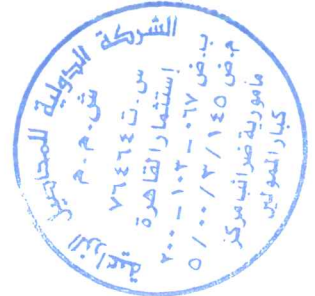 الشركة الدولية للمحاصيل الزراعية
ش.م.م
س.ت ٧٦٤٦٤
إستثمار القاهرة
ب.ض ٢٠٠ – ١٠٣ – ٠٦٧
م.ض ٥/٠٠/٣/١٤٥
مأمورية ضرائب مركز
كبار الممولين